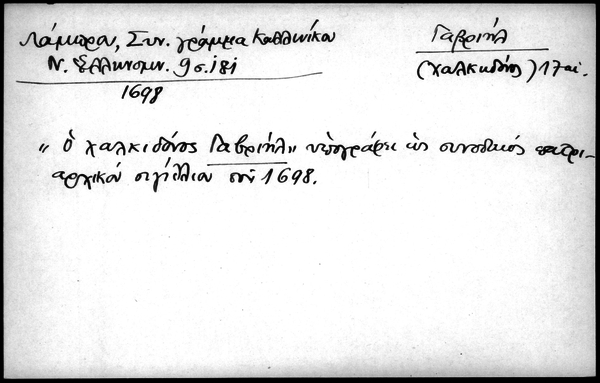 Λάμπρου, Συν. γράμμα Καλλινίκου
Ν. Ἑλληνομν. 9 σ. 181
1698
Γαβριήλ
(Χαλκηδόνος) 17 αἰ.
„ ὁ Χαλκιδόνος Γαβριήλ" ὑπογράφει ὡς συνοδικός πατρι-
αρχικόν σιγίλλιον τοῦ 1698.